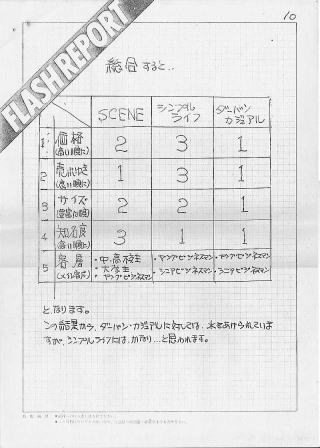 10
FLASH REPORT
総合すると…
SCENE
シンプル
ライフ
ダーバン
カジュアル
1 価格
(高い順に) 2 3 1
2
(高い順に) 1 3 1
3 サイズ
(豊富な順) 2 2 1
4 知名度
(高い順に) 3 1 1
5 客層
・中・高校生
・大学生
・ヤングビジネスマン
・ヤングビジネスマン
・シニアビジネスマン
・ヤングビジネスマン
・シニアビジネスマン
となります。
この結果から、ダーバン・カジュアルに対しては、水をあけられていま
すが、シンプルライフには、かなり…と思われます。